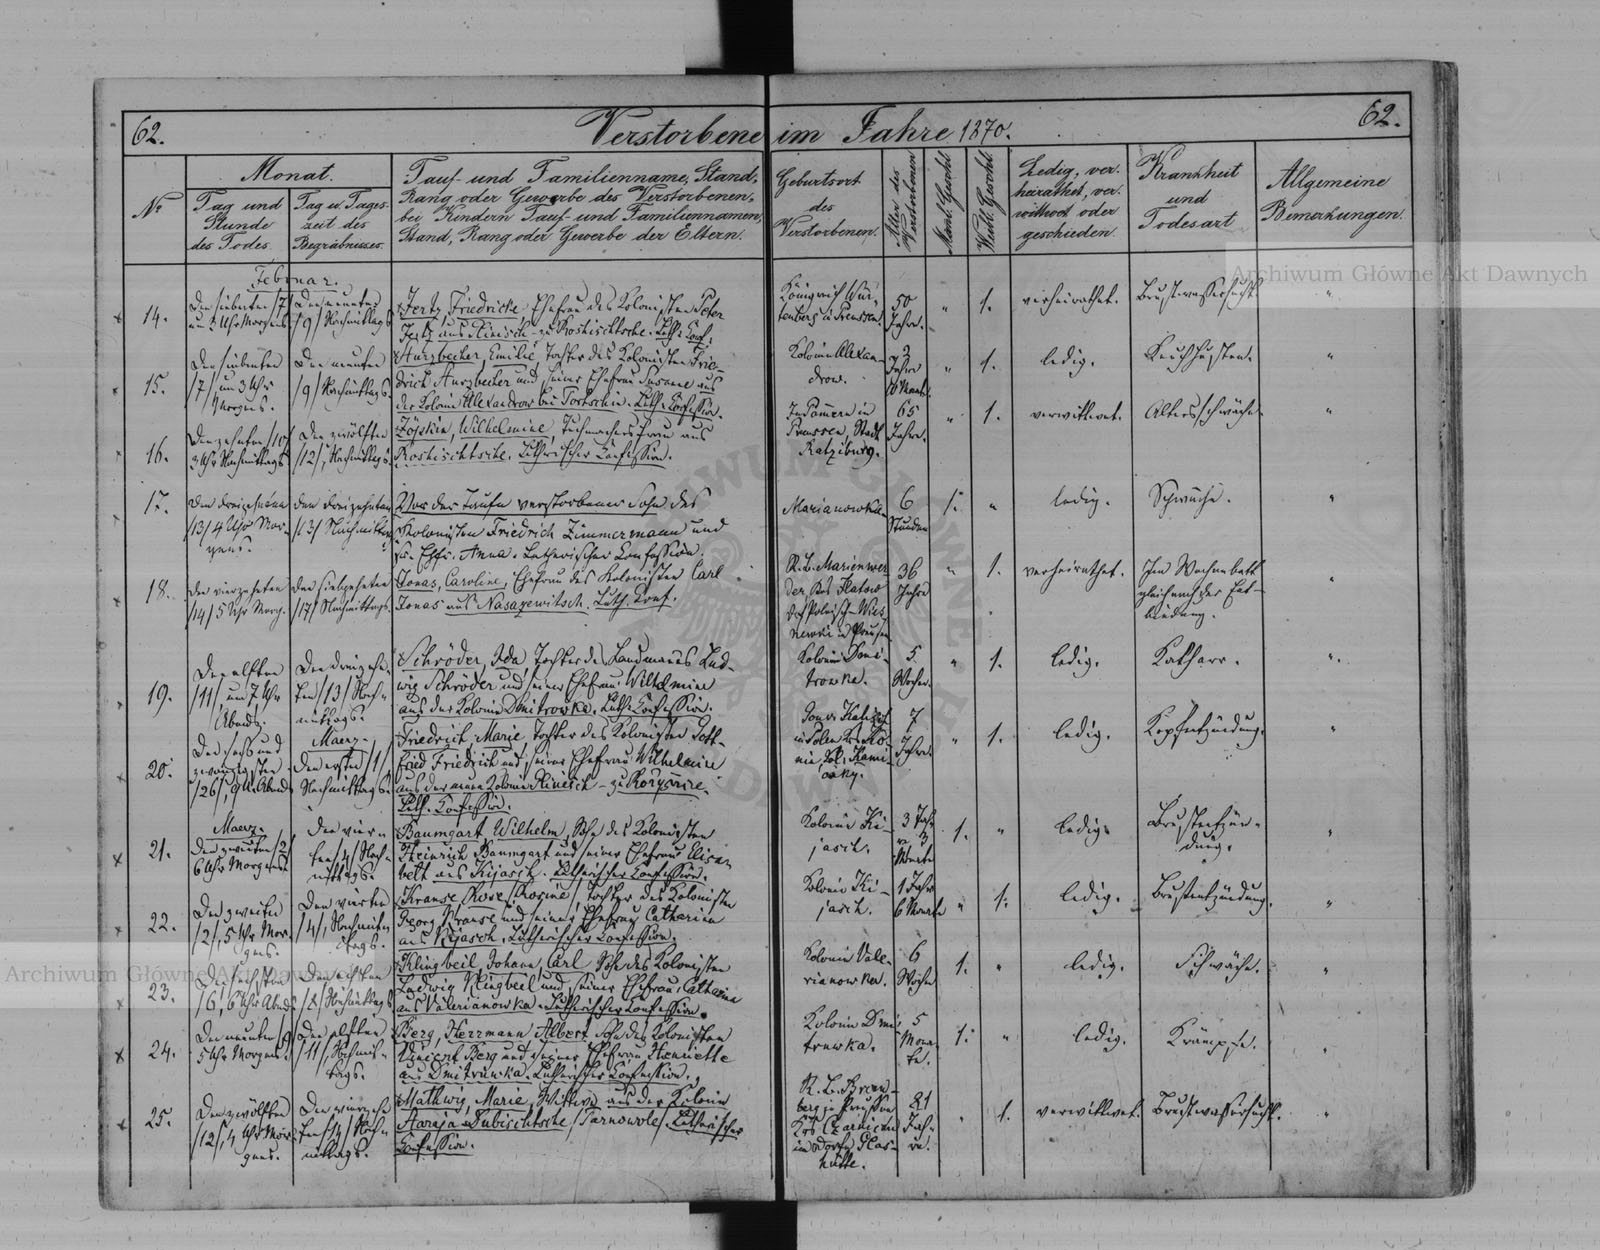 62.
Verstorbene im Jahre 1870.
62.
Nr
Monat.
Tag und
Stunde
des Todes.
Tag u. Tages-
zeit des
Begräbnisses.
Tauf- und Familienname, Stand,
Rang oder Gewerbe des Verstorbenen,
bei Kindern Tauf- und Familiennamen,
Stand, Rang oder Gewerbe der Eltern.
Geburtsort
des
Verstorbenen.
Alter des
Verstorbenen
Männl. Geschl.
Weibl. Geschl.
Ledig, ver-
heirathet, ver-
wittwet oder
geschieden.
Krankheit
und
Todesart
Allgemeine
Bemerkungen.
Februar.
14.
Den siebenten /7/
um Uhr Morgens
Den neunten
/9/ Nachmittags
Jertz, Friedricke Ehefrau des Kolonisten Peter
Jertz aus zu Roshischtsche. Luth. Conf.
Königreich Wür-
tenberg in Preussen.
50
Jahre.
"
1.
verheirathet.
Brustwassersucht
"
15.
Den siebenten
/7/ um 3 Uhr
Morgens.
Den neunten
/9/ Nachmittags
Hurzbecher, Emilie, Tochter des Kolonisten Frie-
drich Hurzbecher und seiner Ehefrau Susane aus
der Kolonie Alexandrow bei Tortschin. Luth. Confession.
Kolonie Alexan-
drow.
2
Jahre
Monate.
"
1.
ledig.
Keuchhusten.
"
16.
Den zehnten /10/
3 Uhr Nachmittags
Den zwölften
/12/, Nachmittags
Wilhelmine, Tuchmachers frau aus
Roshischtsche. Lutherischer Confession.
In Pomern in
Preussen, Stadt
Ratziburg.
65
Jahre.
"
1.
verwittwet.
Altersschwäche
"
17.
Den dreizehnten
/13/ 4 Uhr Mor-
gens.
den dreizehnten
/13/ Nachmittags
Vor der Taufe verstorbener Sohn des
Kolonisten Friedrich Zimmermann und
Anna. Lutherischer Confession.
Marianowka.
6
Stunden
1.
"
ledig.
Schwäche.
"
18.
Den vierzehnten
/14/ 5 Uhr Morg.
Den siebzehnten
/17/ Nachmittags.
Jonas, Caroline, Ehefrau des Kolonisten Carl
Jonas aus Luth. Conf.
R. B. Marienwer-
der, Krs Flatow
Polnisch-Wies-
newki in Preussen
36
Jahre
"
1.
verheirathet.
Im Wochenbett
gleich nach der Ent-
bindung.
"
19.
Den elften
/11/, um 7 Uhr
Abends.
Den dreizehn-
ten /13/ Nach-
mittags.
Schröder, Ida, Tochter des Landmanns Lud-
wig Schröder und seiner Ehefrau Wilhelmine
aus der Kolonie Dmitrowka. Luth. Confession.
Kolonie Dmi-
trowka.
5.
Wochen.
"
1.
ledig.
Katharr.
"
20.
Den sechs und
zwanzigsten
/26/, 9 U. Abends
Maerz.
Den ersten /1/
Nachmittags.
Friedrich, Marie Tochter des Kolonisten Gott-
fried Friedrich und seiner Ehefrau Wilhelmine
aus der neuen Kolonie zu
Luth. Confession.
Gouv. Kalisch
in Polen Krs Ko-
nin, Kol.
7
Jahre.
"
1.
ledig.
Kopfentzündung.
"
21.
Maerz.
Den zweiten /2/
6 Uhr Morgens
Den vier-
ten /4/ Nach-
mittags.
Baumgart, Wilhelm, Sohn des Kolonisten
Heinrich Baumgart und seiner Ehefrau Elisa-
bett aus Kijasch. Lutherischer Confession.
Kolonie Ki-
jasch.
3 Jahr
Monate
1.
"
ledig.
Brustentzün-
dung.
"
22.
Den zweiten
/2/, 5 Uhr Mor-
gens.
Den vierten
/4/, Nachmit-
tags.
Krause, Rose, /Rosine/, Tochter des Kolonisten
Georg Krause und seiner Ehefrau Catharina
aus Kijasch. Lutherischer Confession.
Kolonie Ki-
jasch.
1 Jahr
6 Monate
"
1.
ledig.
Brustentzündung.
"
23.
Den sechsten
/6/, 6 Uhr Abends
Den achten
/8/ Nachmittags
Klingbeil, Johann, Carl Sohn des Kolonisten
Ludwig Klingbeil und seiner Ehefrau Catharina
aus Valerianowka. Lutherischer Confession.
Kolonie Vale-
rianowka.
6
Wochen
1.
"
ledig.
Schwäche.
"
24.
Den neunten /9/
5 Uhr Morgens.
Den elften
/11/, Nachmit-
tags.
Berg, Herrmann Albert Sohn des Kolonisten
Vincent Berg und seiner Ehefrau Henriette
aus Dmitruwka. Lutherischer Confession.
Kolonie Dmi-
truwka.
5
Mona-
te.
1.
"
ledig.
Krämpfe.
"
25.
Den zwölften
/12/, 4 Uhr Mor-
gens.
Den vierzehn-
ten /14/ Nach-
mittags.
Mathwig, Marie, Wittwe aus der Kolonie
/Tarnowole/ Lutherischer
Confession.
R. B. Brom-
berg in Preussen
Krs Czarnicau
im Dorfe Glas-
hütte.
81
Jah-
re.
"
1.
verwittwet.
Brustwassersucht.
"
Archiwum Główne Akt Dawnych
Archiwum Główne Akt Dawnych